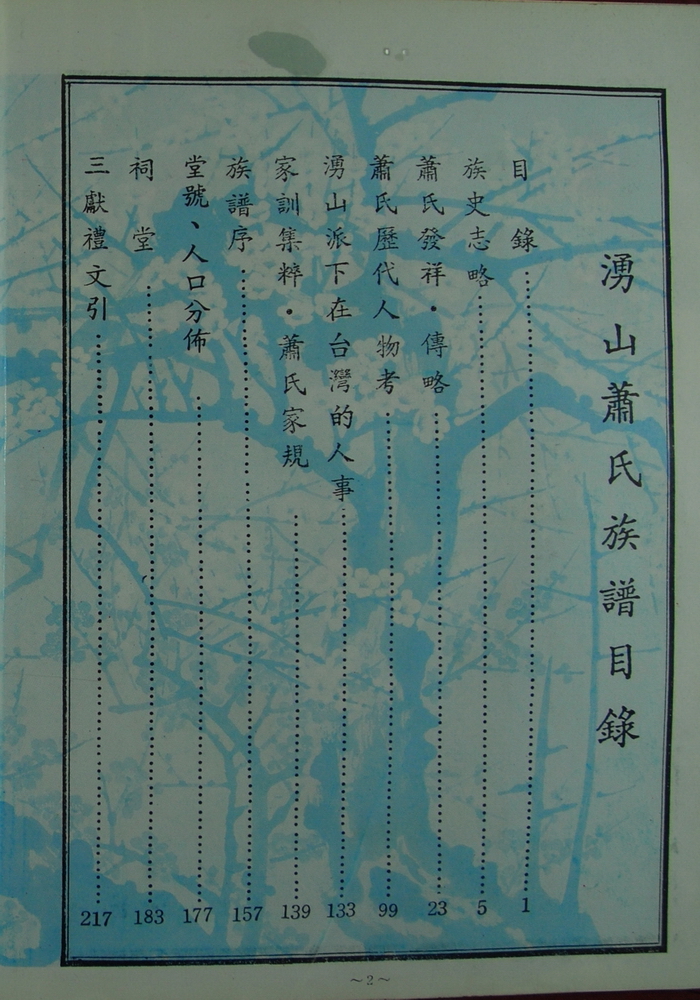 湧山蕭氏族譜目錄
目錄……1
族史志略……5
蕭氏發祥・傳略……23
蕭氏歷代人物考……99
湧山派下在台灣的人事……133
家訓集粹・蕭氏家規……139
族譜序……157
堂號、人口分佈……177
祠堂……183
三獻禮文引……217
~2~